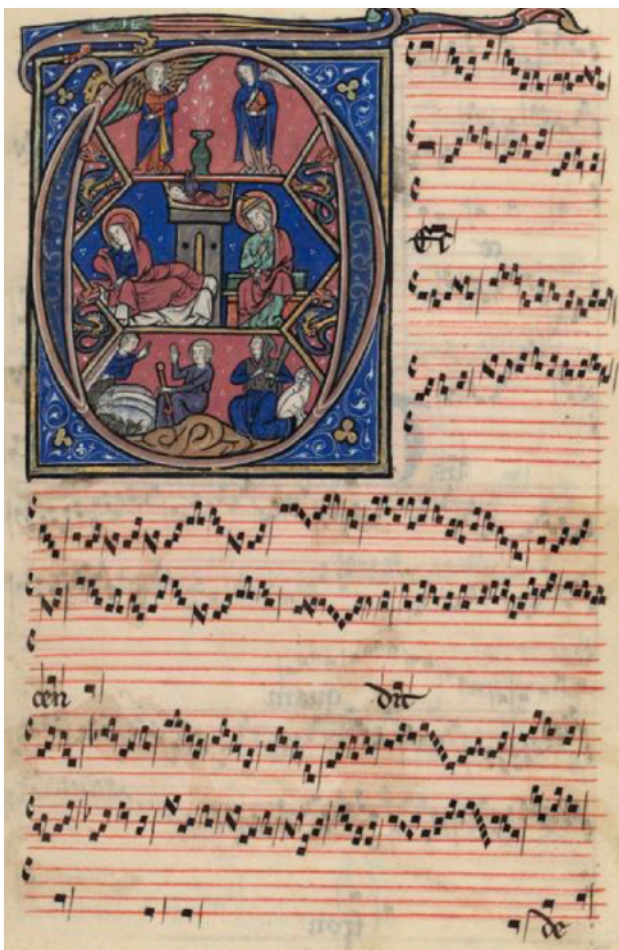 DES
cen dit
de